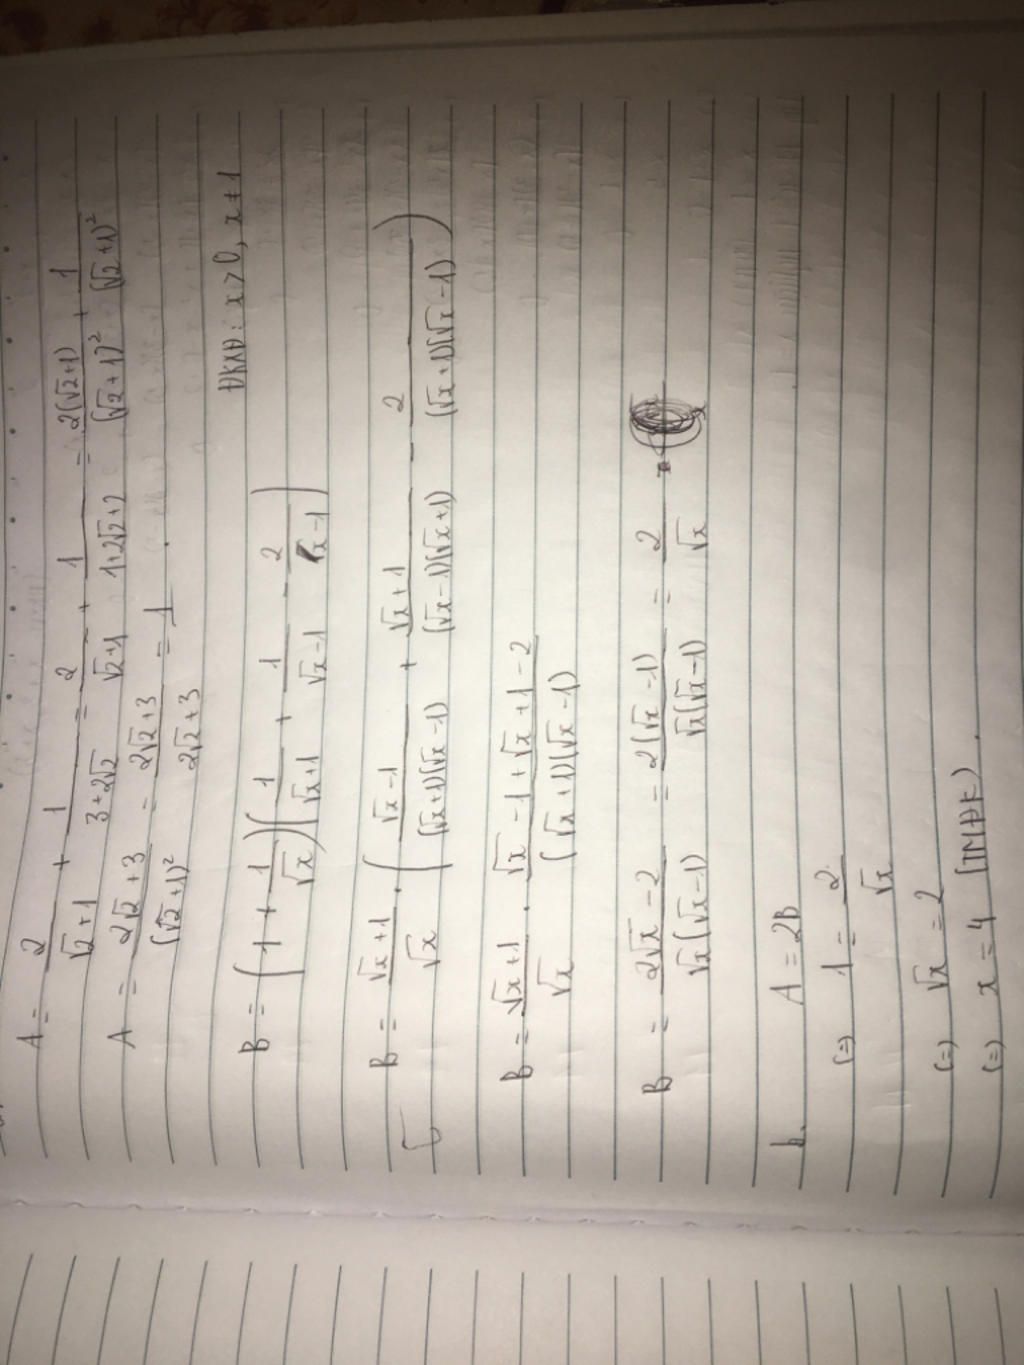 A = 2/(√2+1) + 1/(3+2√2) = 2/(√2+1) + 1/(1+2√2+2) = 2(√2+1)/(√2+1)² + 1/(√2+1)²
A = (2√2+3)/(√2+1)² = (2√2+3)/(2√2+3) = 1.
B = (1 + 1/√x)(1/(√x+1) + 1/(√x-1) - 2/(x-1)) ĐKXĐ: x>0, x≠1
B = (√x+1)/√x . ((√x-1)/((√x+1)(√x-1)) + (√x+1)/((√x-1)(√x+1)) - 2/((√x+1)(√x-1)))
B = (√x+1)/√x . (√x-1+√x+1-2)/((√x+1)(√x-1))
B = (2√x-2)/(√x(√x-1)) = 2(√x-1)/(√x(√x-1)) = 2/√x
b. A = 2B
(=) 1 = 2/√x
(=) √x = 2
(=) x = 4 (TMĐK).